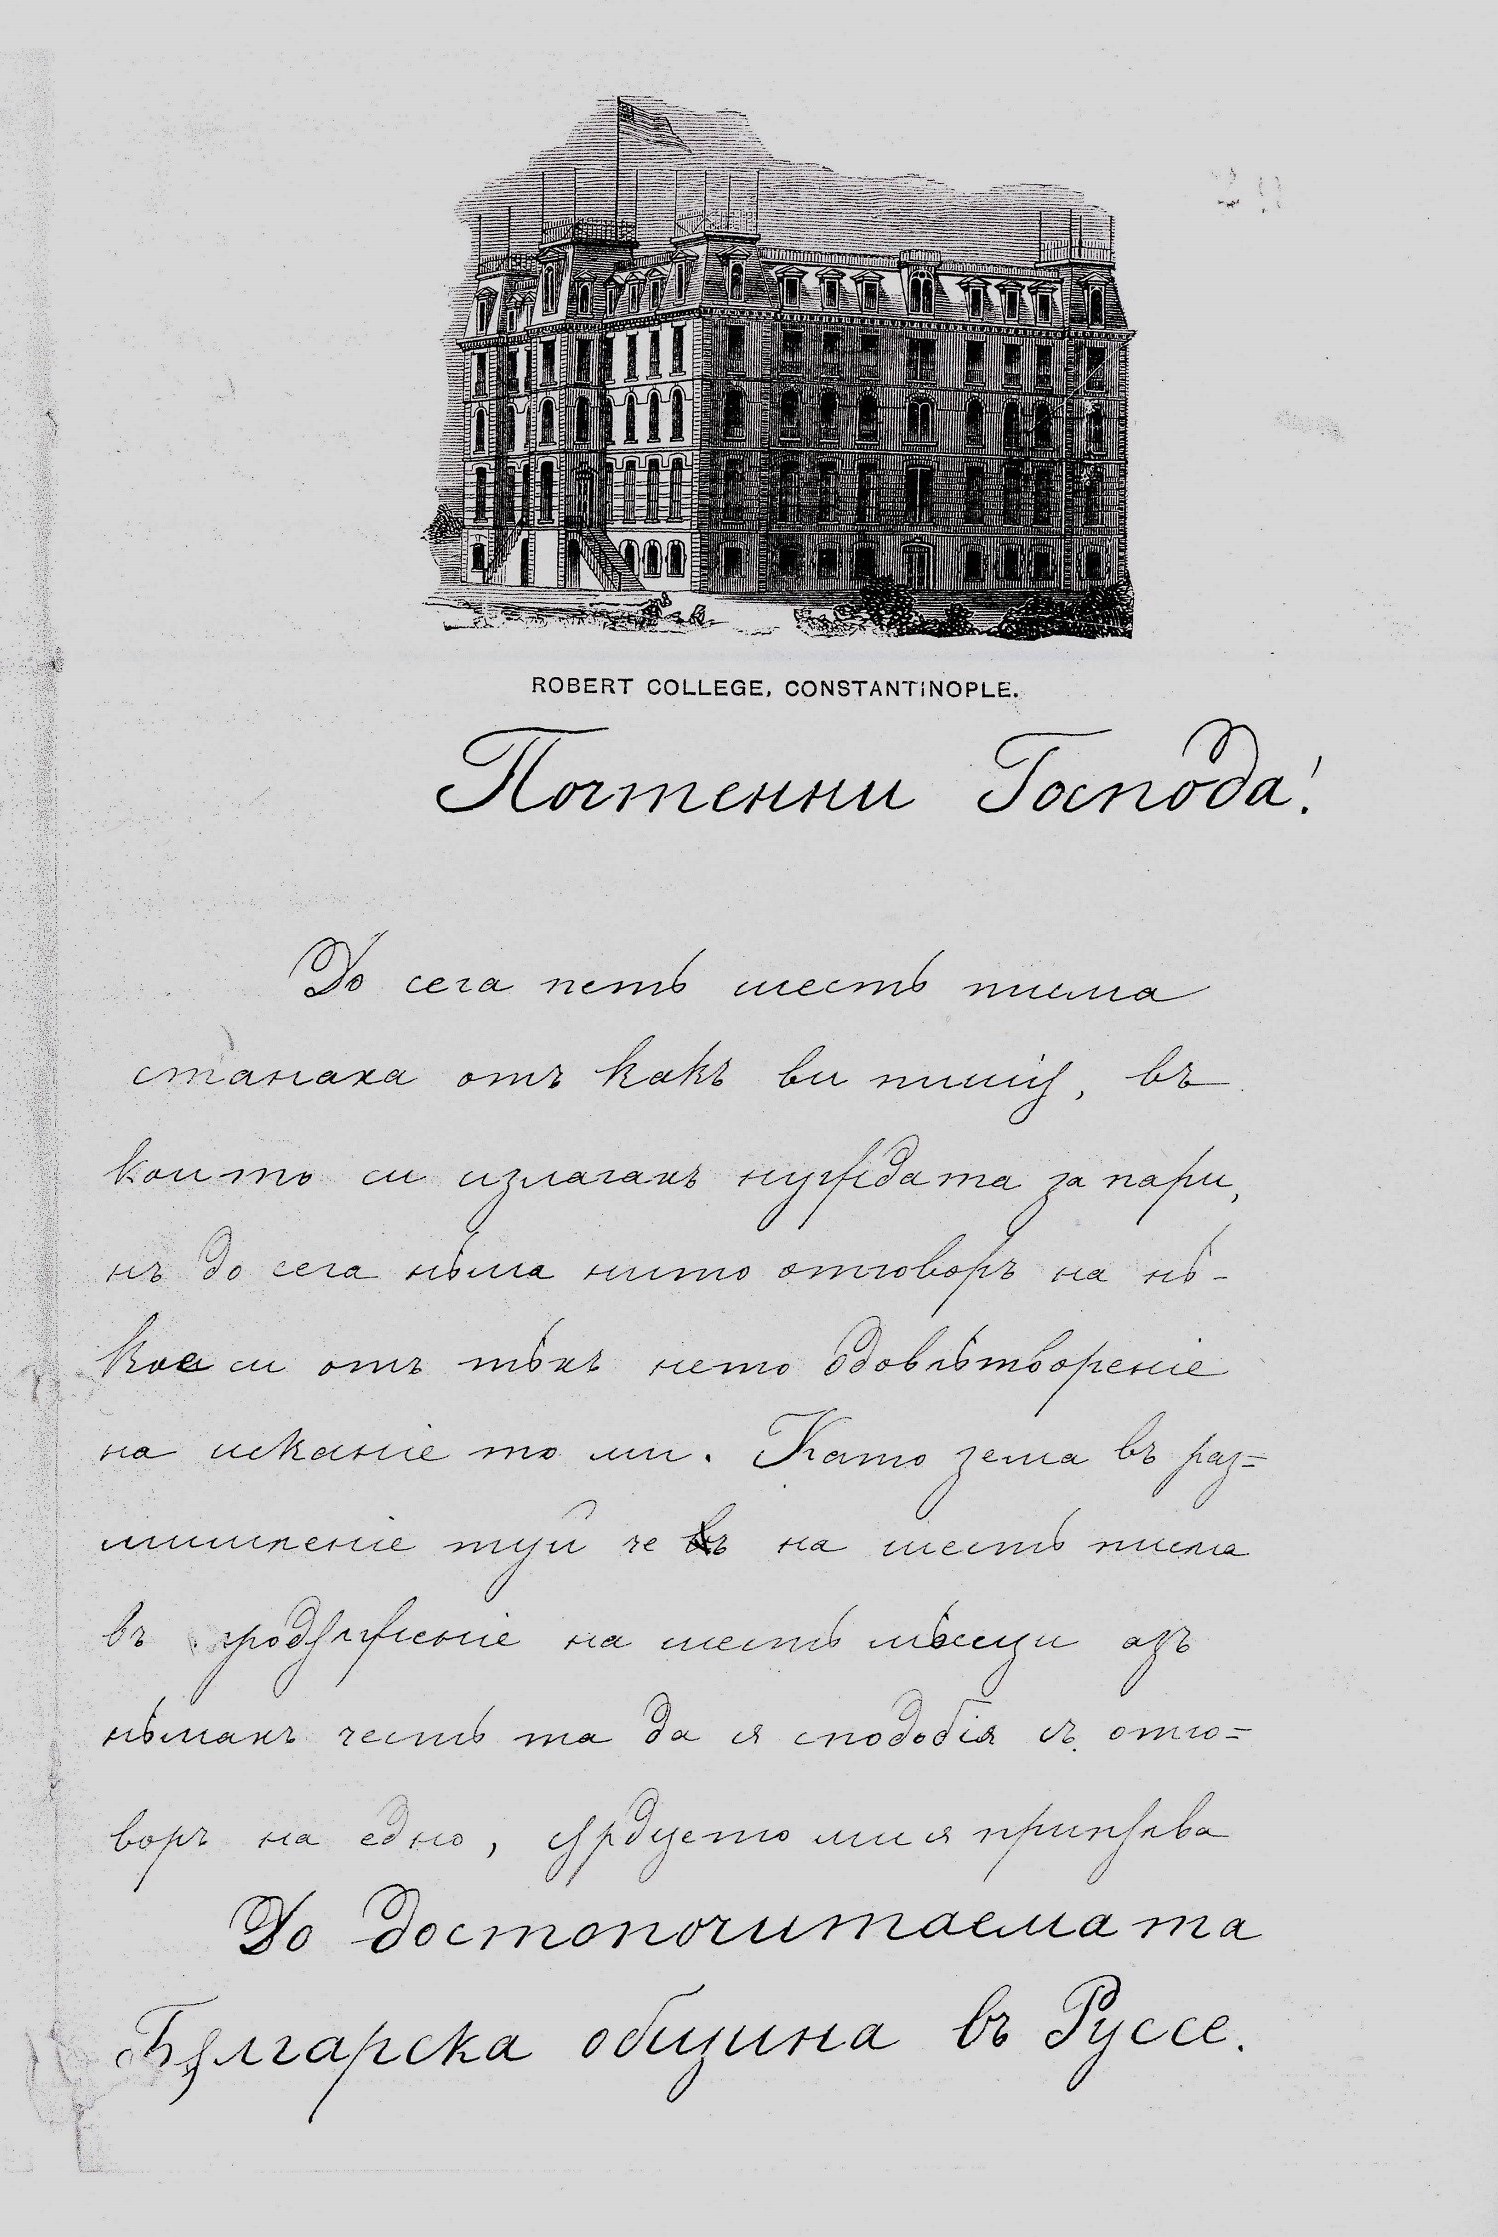 ROBERT COLLEGE, CONSTANTINOPLE.
Почтенни Господа!
До сега петь шесть писма
станаха отъ какъ ви пишѫ, въ
които си излагахъ нуждата за пари,
нъ до сега нѣма нито отговоръ на нѣ-
кое си отъ тѣхъ нето одовлѣтворение
на искание то ми. Като зема въ раз=
мишление туй че на шесть писма
въ продѫлжение на шесть мѣсеци азъ
нѣмахъ честь та да ся сподобія съ отго=
воръ на едно, сѫрдцето ми ся припѫлва
До достопочитаема та
Бѫлгарска община въ Руссе.